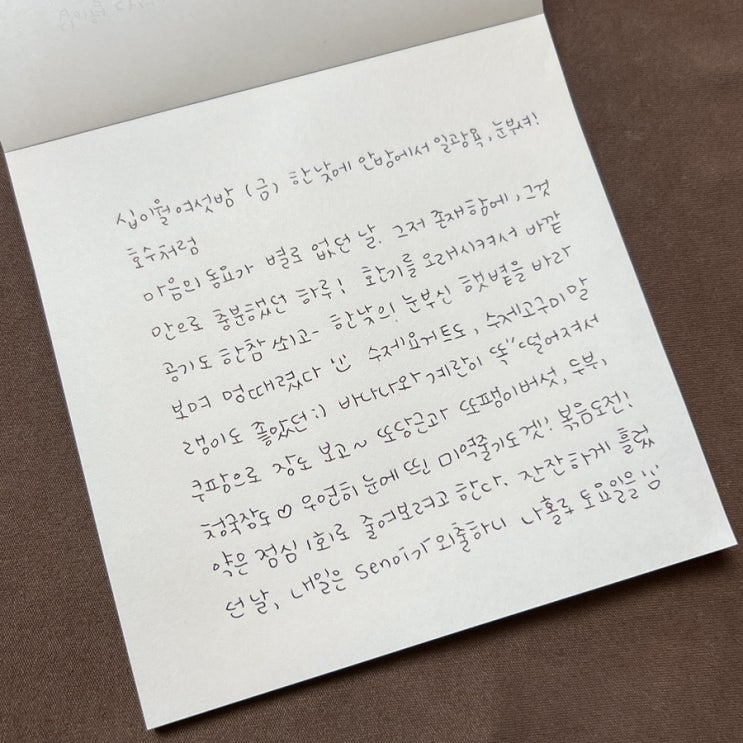 십이월 여섯밤 (금) 한낮에 안방에서 일광욕, 눈부셔!
호수처럼
마음의 동요가 별로 없던 날. 그저 존재함에, 그것
만으로 충분했던 하루! 환기를 오래시켜서 바깥
공기도 한참 쐬고- 한낮의 눈부신 햇볕을 바라
보며 멍때렸다 :) 수제요거트도, 수제고구마말
랭이도 좋았던:) 바나나와 계란이 똑" 떨어져서
쿠팡으로 장도 보고~ 또당근과 또팽이버섯, 두부,
청국장도♡ 우연히 눈에 띈 미역줄기도 겟! 볶음도전!
약은 점심 1회로 줄여보려고 한다. 잔잔하게 흘렀
던 날, 내일은 senoi가 외출하니 나홀로 토요일을 :)